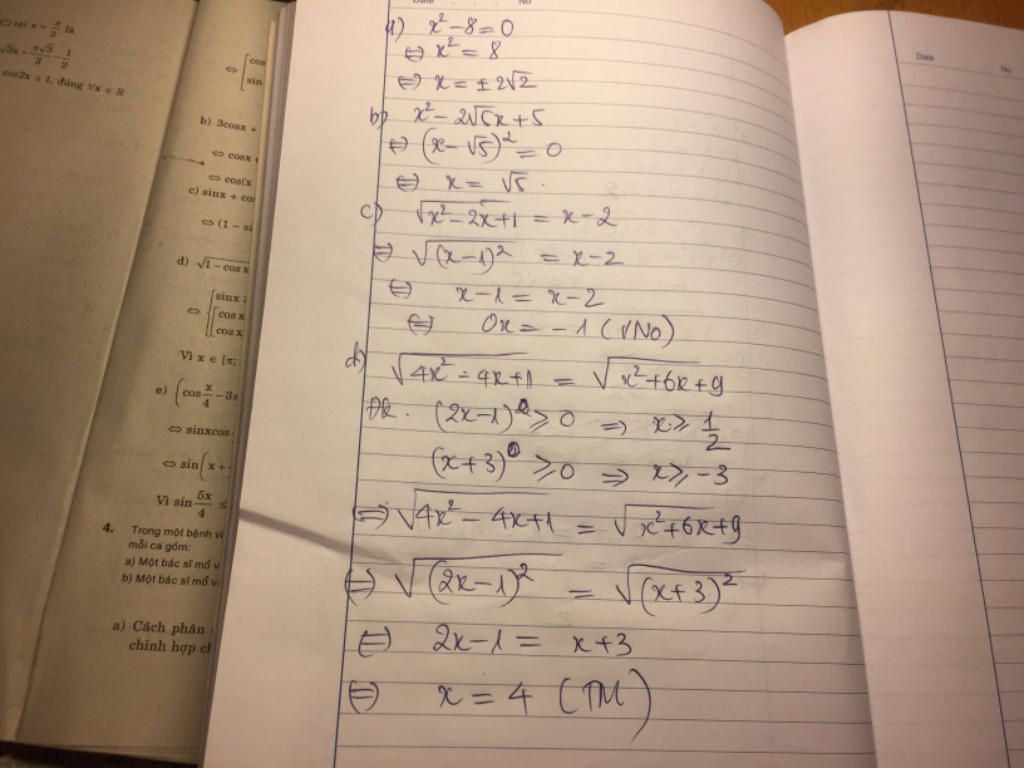 C) tại x = π/3 là
√3x = π√3/3 - 1/2
cos2x ≤ 1, đúng ∀x ∈ R
⇔ [cos
sin
b) 3cosx +
⇔ cosx
⇔ cos(x
c) sinx + cos
⇔ (1 - si
d) √1 - cosx
⇔ {[sinx
[cosx
cosx
Vì x ∈ [π;
e) (cos x/4 - 3s
⇔ sinxcos
⇔ sin(x +
Vì sin 5x/4 ≤
4. Trong một bệnh vi
mỗi ca gồm:
a) Một bác sĩ mổ v
b) Một bác sĩ mổ v
a) Cách phân
chỉnh hợp ch
Date No
x² - 8 = 0
⇔ x² = 8
⇔ x = ± 2√2
b) x² - 2√5x + 5
⇔ (x - √5)² = 0
⇔ x = √5.
c) √x² - 2x + 1 = x - 2
⇔ √(x - 1)² = x - 2
⇔ x - 1 = x - 2
⇔ 0x = -1 (VNo)
d) √4x² - 4x + 1 = √x² + 6x + 9
ĐK. (2x - 1) ≥ 0 ⇒ x ≥ 1/2
(x + 3) ≥ 0 ⇒ x ≥ -3
⇔ √4x² - 4x + 1 = √x² + 6x + 9
⇔ √(2x - 1)² = √(x + 3)²
⇔ 2x - 1 = x + 3
⇔ x = 4 (TM)
Date No